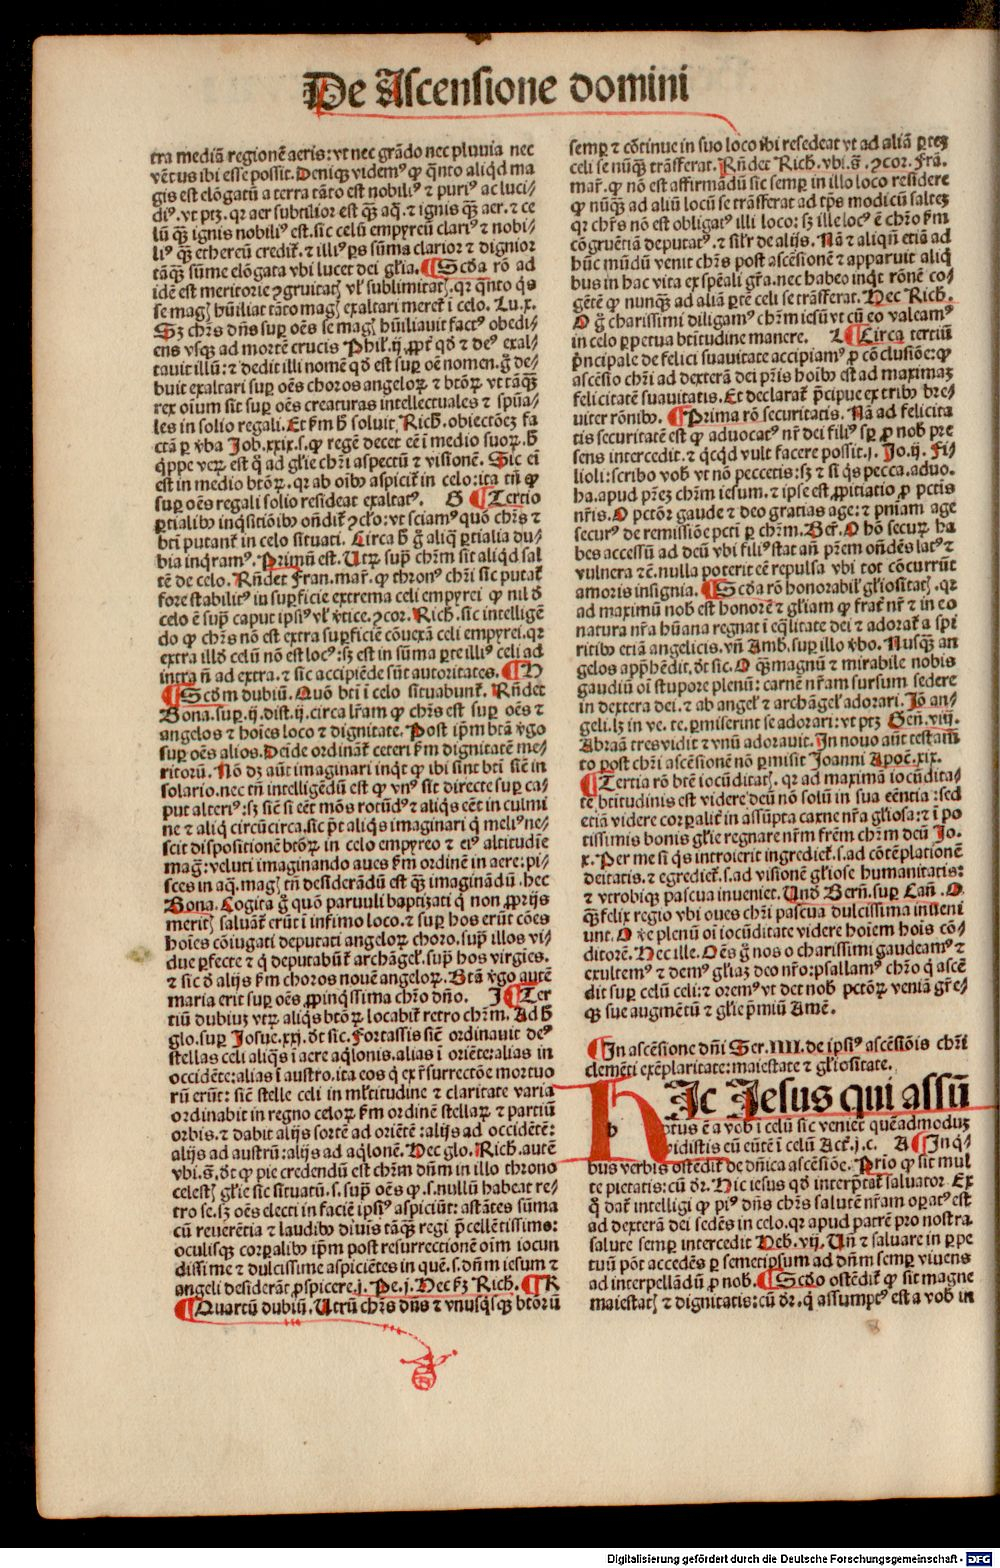 De Ascensione domini
tra mediā regionē aeris: vt nec grādo nec pluuia nec
vētus ibi esse possit. Deniqꝫ videmꝰ ꝙ q̄nto aliqd ma
gis est elōgatū a terra tāto est nobiliꝰ ⁊ puriꝰ ac luci⸗
diꝰ. vt ptꝫ. qr aer subtilior est q̄ꝫ aq̄. ⁊ ignis q̄ꝫ aer. ⁊ ce
lū q̄ꝫ ignis nobiliꝰ est. sic celū empyreū clariꝰ ⁊ nobi⸗
liꝰ q̄ꝫ ethereū credit̄. ⁊ illiꝰ ps sūma clarior ⁊ dignior
tāq̄ꝫ sūme elōgata vbi lucet dei gl̄ia. ¶ Scd̄a rō ad
idē est meritorie ꝯgruitatꝭ vl̓ sublimitatꝭ. qr q̄nto q̄s
se magꝭ hūiliat tāto magꝭ exaltari meret̄ i celo. Lu.x.
Sꝫ chr̄s dn̄s suꝑ oēs se magꝭ hūiliauit factꝰ obedi⸗
ens vsqꝫ ad mortē crucis Phil̓.ij. ꝓpt̓ qd̓ ⁊ deꝰ exal⸗
tauit illū: ⁊ dedit illi nomē qd̓ est suꝑ oē nomen. g̓ de⸗
buit exaltari suꝑ oēs choros angeloꝝ ⁊ btōꝝ vt tāq̄ꝫ
rex oīum sit suꝑ oēs creaturas intellectuales ⁊ spūa⸗
les in solio regali. Et ẜm h̓ soluit̄ Rich. obiectōeꝫ fa
ctā ꝑ v̓ba Job.xxix.s. ꝙ regē decet eē i medio suoꝝ. h̓
q̄ppe veꝝ est q̄ ad gl̓ie chr̄i aspectū ⁊ visionē. Sic ei̅
est in medio btōꝝ. qr ab oībꝰ aspicit̄ in celo: ita tn̄ ꝙ
suꝑ oēs regali solio resideat exaltatꝰ. G ¶ Tertio
ꝑtialibꝰ inq̄sitiōibꝰ on̄dit̄ ꝯclo: vt sciamꝰ quō chr̄s ⁊
bti̅ putant̄ in celo situati. Circa h̓ g̓ aliq̄ ꝑtialia du⸗
bia inq̄ramꝰ. Primū est. Utꝝ suꝑ chr̄m sit aliqd sal
tē de celo. Rn̄det Fran. mar̄. ꝙ thronꝰ chr̄i sic putat̄
fore stabilitꝰ in suꝑficie extrema celi empyrei ꝙ nil d̓
celo ē suꝑ caput ipsiꝰ vl̓ v̓tice. ꝯcor. Rich. sic intelligē
do ꝙ chr̄s nō est extra suꝑficiē cōuexā celi empyrei. qr
extra illd̓ celū nō est locꝰ: sꝫ est in sūma ꝑte illiꝰ celi ad
intra n̄ ad extra. ⁊ sic accipiēde sūt autoritates. ¶ H
¶ Scd̄m dubiū. Quō bti̅ i celo situabunt̄. Rn̄det
Bona. suꝑ.ij. dist.ij. circa lr̄am ꝙ chr̄s est suꝑ oēs ⁊
angelos ⁊ hoīes loco ⁊ dignitate. Post ip̄m btā v̓go
suꝑ oēs alios. Deīde ordinat̄ ceteri ẜm dignitatē me⸗
ritorū. Nō dꝫ aūt imaginari inq̄t ꝙ ibi sint bti̅ sicē in
solario. nec tn̄ intelligēdū est ꝙ vnꝰ sit directe suꝑ ca⸗
put alteriꝰ: sꝫ sicē si eēt mōs rotūdꝰ ⁊ aliq̄s eēt in culmi
ne ⁊ aliq̄ circūcirca. sic p̄t aliq̄s imaginari q̄ meliꝰ ne⸗
scit dispositionē btōꝝ in celo empyreo ⁊ eiꝰ altitudīe
mag̓: veluti imaginando aues ẜm ordinē in aere: pi⸗
sces in aq̄. magꝭ tn̄ desiderādū est q̄ꝫ imaginādū. hec
Bona. Cogita g̓ quō paruuli baptizati q̄ non ꝓprijs
meritꝭ saluāt̄ erūt i infimo loco. ⁊ suꝑ hos erūt cōes
hoīes cōiugati deputati angeloꝝ choro. suꝑ illos vi⸗
due ꝑfecte ⁊ q̄ deputabūt̄ archāgel̓. suꝑ hos virgīes.
⁊ sic d̓ alijs ẜm choros nouē angeloꝝ. Btā v̓go autē
maria erit suꝑ oēs ꝓpinq̄ssima chr̄o dn̄o. J ¶ Ter
tiū dubiuꝫ vtꝝ aliq̄s btōꝝ locabit̄ retro chr̄m. Ad h̓
glo. suꝑ Josue.xxj. d̓t sic. Fortassis sicē ordinauit deꝰ
stellas celi aliq̄s i aere aq̄lonis. alias i oriēte: alias in
occidēte: alias i austro. ita eos q̄ ex r̓surrectōe mortuo
rū erūt: sicē stelle celi in ml̓titudine ⁊ claritate varia
ordinabit in regno celoꝝ ẜm ordinē stellaꝝ ⁊ partiū
orbis. ⁊ dabit alijs sortē ad oriētē: alijs ad occidētē:
alijs ad austrū: alijs ad aq̄lonē. Hec glo. Rich. autē
vbi.s. d̓t ꝙ pie credendū est chr̄m dn̄m in illo throno
celestꝭ gl̓ie sic situatū. s. suꝑ oēs ꝙ.s. nullū habeat re⸗
tro se. sꝫ oēs electi in faciē ipsiꝰ aspiciūt: astātes sūma
cū reuerētia ⁊ laudibꝰ diuīs tāq̄ꝫ regi p̄cellētissimo:
oculisqꝫ corꝑalibꝰ ip̄m post resurrectionē oīm iocun
dissime ⁊ dulcissime aspiciētes in quē.s. dn̄m iesum ⁊
angeli desiderāt ꝓspicere.j. Pe.j. Hec ẜꝫ Rich. ¶ K
¶ Quartū dubiū. Utrū chr̄s dn̄s ⁊ vnusq̄sqꝫ btōrū
semꝑ ⁊ cōtinue in suo loco ibi resedeat vt ad aliā ꝑteꝫ
celi se nūq̄ꝫ trāsferat. Rn̄det Rich. vbi.s̄. ꝯcor. Frā.
mar̄. ꝙ nō est affirmādū sic semꝑ in illo loco residere
ꝙ nūq̄ꝫ ad aliū locū se trāsferat ad tp̄s modicū salteꝫ
qr chr̄s nō est obligatꝰ illi loco: sꝫ ille locꝰ ē chr̄o ẜm
cōgruētiā deputatꝰ. ⁊ sil̓r de alijs. Nā ⁊ aliqn̄ etiā ad
hūc mūdū venit chr̄s post ascēsionē ⁊ apparuit aliq̄
bus in hac vita ex spēali gr̄a. nec habeo inq̄t rōnē co⸗
gētē ꝙ nunq̄ꝫ ad aliā ꝑtē celi se trāsferat. Hec Rich.
O g̓ charissimi diligamꝰ chr̄m iesū vt cū eo valeamꝰ
in celo ꝑpetua btitudine manere. L ¶ Circa tertiū
pͥncipale de felici suauitate accipiamꝰ ꝓ cōclusiōe: ꝙ
ascēsio chr̄i ad dexterā dei pr̄is hoībꝰ est ad maximaꝫ
felicitatē suauitatis. Et declarat̄ p̄cipue ex tribꝰ bre⸗
uiter rōnibꝰ. ¶ Prima rō securitatis. Nā ad felicita
tis securitatē est ꝙ aduocatꝰ nr̄ dei filiꝰ sꝑ ꝓ nob̓ pre
sens intercedit. ⁊ q̄cqd vult facere possit.j. Jo.ij. Fi⸗
lioli: scribo vob̓ vt nō peccetis: sꝫ ⁊ si q̄s pecca. aduo.
ha. apud pr̄eꝫ chr̄m iesum. ⁊ ipse est ꝓpitiatio ꝓ pctīs
nr̄is. O pctōr gaude ⁊ deo gratias age: ⁊ pn̄iam age
securꝰ de remissiōe pcti̅ ꝑ chr̄m. Ber̄. O hō securꝰ ha
bes accessū ad deū vbi filiꝰ stat an̄ pr̄em on̄dēs latꝰ ⁊
vulnera ⁊c̄. nulla poterit eē repulsa vbi tot cōcurrūt
amoris insignia. ¶ Scd̄a rō honorabil̓ gl̓iositatꝭ. qr
ad maximū nob̓ est honorē ⁊ gl̓iam ꝙ frat̄ nr̄ ⁊ in eo
natura nr̄a hūana regnat i eq̄litate dei ⁊ adorat̄ a spi
ritibꝰ etiā angelicis. vn̄ Amb. suꝑ illo v̓bo. Nusq̄ꝫ an
gelos app̄hēdit. d̓t sic. O q̄ꝫ magnū ⁊ mirabile nobis
gaudiū oi̅ stupore plenū: carnē nr̄am sursum sedere
in dextera dei. ⁊ ab angel̓ ⁊ archāgel̓ adorari. Jō an⸗
geli. lꝫ in ve. te. ꝑmiserint se adorari: vt ptꝫ Gen̄.viij.
Abraā tres vidit ⁊ vnū adorauit. In nouo aūt testam̄
to post chr̄i ascēsionē nō ꝑmisit Joanni Apoc̄.xix.
¶ Tertia rō btē iocūditatꝭ. qr ad maximā iocūdita⸗
tē btitudinis est videre deū nō solū in sua eēntia: sed
etiā videre corꝑalit̓ in assūpta carne nr̄a gl̓iosa: ⁊ i po
tissimis bonis gl̓ie regnare nr̄m fr̄em chr̄m deū Jo.
x. Per me si q̄s introierit ingrediet̄.s. ad cōtēplationē
deitatis. ⁊ egrediet̄.s. ad visionē gl̓iose humanitatis:
⁊ vtrobiqꝫ pascua inueniet. Und̓ Bern̄. suꝑ Can̄. O
q̄ꝫ felix regio vbi oues chr̄i pascua dulcissima inueni
unt. O v̓e plenū oi̅ iocūditate videre hoīem hoīs cō⸗
ditorē. Hec ille. Oēs g̓ nos o charissimi gaudeamꝰ ⁊
exultemꝰ ⁊ demꝰ gl̓iaꝫ deo nr̄o: psallamꝰ chr̄o q̄ ascē
dit suꝑ celū celi: ⁊ oremꝰ vt det nob̓ pctōꝝ veniā gr̄e⸗
qꝫ sue augmētū ⁊ gl̓ie pͥmiū Amē.
¶ In ascēsione dn̄i Ser.IIII. de ipsiꝰ ascēsiōis chr̄i
clemēti exēplaritate: maiestate ⁊ gl̓iositate.
HIc Jesus qui assū
ptus ē a vob̓ i celū sic veniet quēadmoduꝫ
vidistis eū eūtē i celū Act̄.j.c. A ¶ In q̄⸗
bus verbis ostēdit̄ de dn̄ica ascēsiōe. Prīo ꝙ sit mul
te pietatis: cū d̓r. Hic iesus qd̓ interp̄tat̄ saluator. Ex
q̄ dat̄ intelligi ꝙ piꝰ dn̄s chr̄s salutē nr̄am oꝑatꝰ est
ad dexterā dei sedēs in celo. qr apud patrē pro nostra
salute semꝑ intercedit Heb.vij. Un̄ ⁊ saluare in ꝑpe
tuū pōt accedēs ꝑ semetipsum ad dn̄m semꝑ viuens
ad interpellādū ꝓ nob̓. ¶ Scd̓o ostēdit̄ ꝙ sit magne
maiestatꝭ ⁊ dignitatis: cū d̓r. q̄ assumptꝰ est a vob̓ in
Digitalisierung gefördert durch die Deutsche Forschungsgemeinschaft - DFG